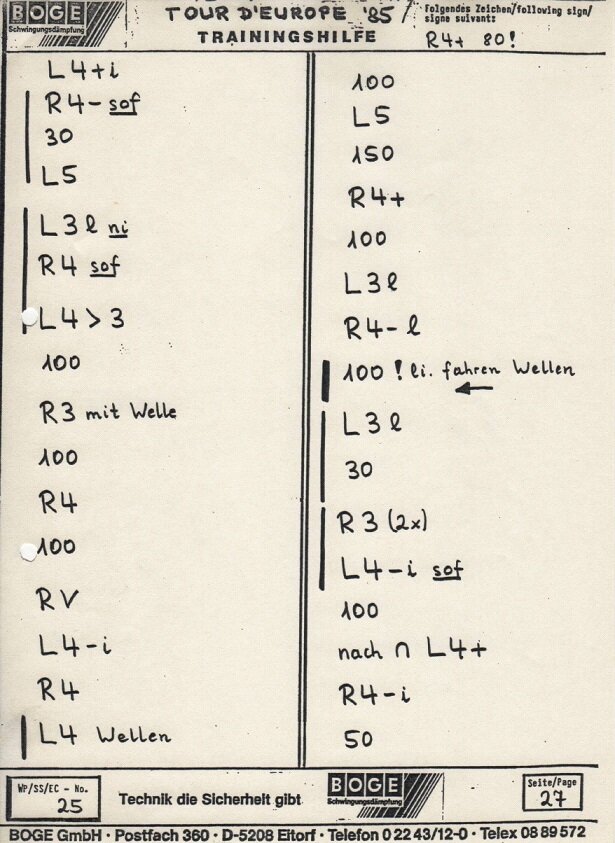 BOGE
Schwingungsdämpfung
TOUR D'EUROPE '85
TRAININGSHILFE
Folgendes Zeichen/following sign/
signe suivant:
R4+ 80!
L4+i
R4- sof
30
L5
L3l ni
R4 sof
L4>3
100
R3 mit Welle
100
R4
100
RV
L4-i
R4
L4 Wellen
100
L5
150
R4+
100
L3l
R4-l
100 ! li. fahren Wellen
←
L3l
30
R3 (2x)
L4-i sof
100
nach ∩ L4+
R4-i
50
WP/SS/EC - No.
25
Technik die Sicherheit gibt
BOGE
Schwingungsdämpfung
Seite/Page
27
BOGE GmbH · Postfach 360 · D-5208 Eitorf · Telefon 0 22 43/12-0 · Telex 08 89 572